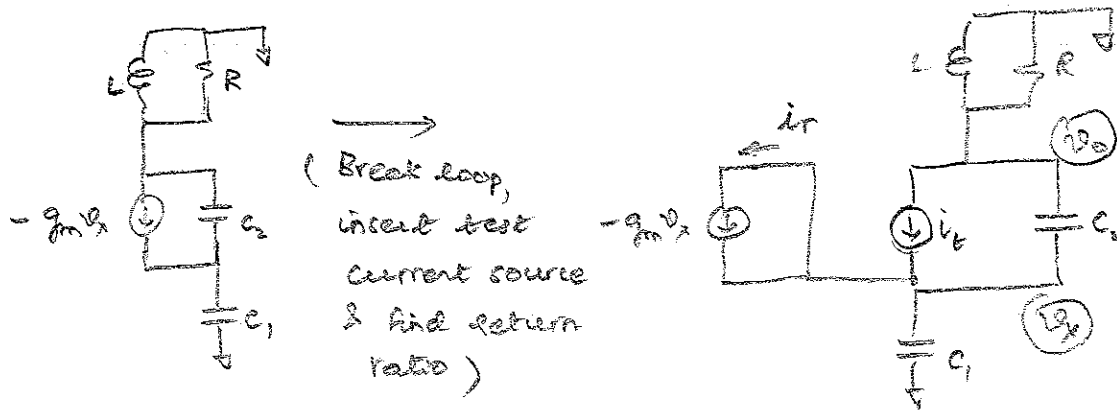 L
R
-gₘvₓ
C₂
C₁
( Break loop,
insert test
current source
& find return
ratio )
iᵣ
-gₘvₓ
L
R
v₀
iₜ
C₂
vₓ
C₁